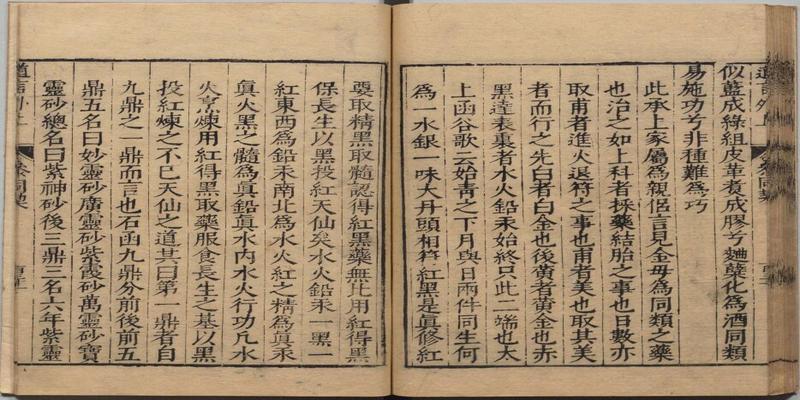 似藍成綠組皮革煑成膠兮麯蘖化為酒同類
易施功兮非種難為巧
此承上家屬為親侶言見金毋為同類之藥
也治之如上科者採藥結胎之事也日數亦
取甫者進火退符之事也甫者美也取其美
者而行之先白者白金也後黃者黃金也赤
黑達表裏者水火鉛汞始終只此二端也太
上函谷歌云始青之下月與日兩件同生何
為一水銀一味大丹頭相符紅黑是眞修紅
要取精黑取髓認得紅黑藥無比用紅得黑
保長生以黑投紅天仙矣水火鉛汞一黑一
紅東西為鉛汞南北為水火紅之精為眞汞
眞火黑之髓為眞鉛眞水內水火行功凢水
火烹煉用紅得黑取藥服食長生之基以黑
投紅煉之不已天仙之道其曰第一鼎者自
九鼎之一鼎而言也石函九鼎分前後前五
鼎五名曰妙靈砂廣靈砂紫霞砂萬靈砂寶
靈砂總名曰紫神砂後三鼎三名六年紫靈
道言外
參同契